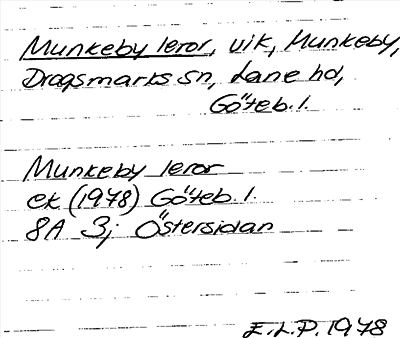 Munkeby leror, vik, Munkeby,
Dragsmarks sn, Lane hd,
Göteb. l.
Munkeby leror
ek (1978) Göteb. l.
8A 3j Östersidan
E.L.P. 1978